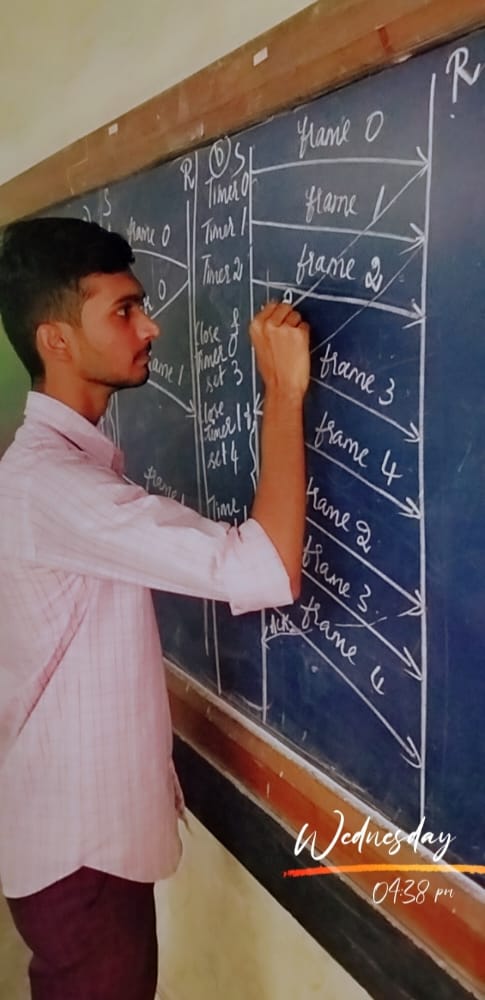 S
R
frame 0
0
frame 1
frame 1
(b) S
R
Timer 0
Timer 1
Timer 2
close of
timer 0
set 3
close
timer 1 &
set 4
Time
frame 0
frame 1
frame 2
frame 3
frame 4
frame 2
frame 3
frame 4
Wednesday
04:38 PM